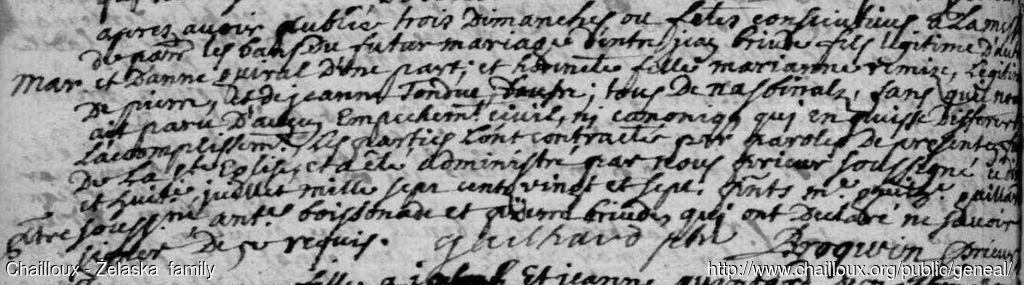 apres avoir publiés trois Dimanches ou festes consecutives a La messe
de parr les bans Du futur mariage d'entre jean brivde fils legitime
Mar. et Danne quiral d'une part; et honneste fille marianne remize, Legitime
De pierre, et de jeanne Tondue d'autre; tous De nasbinals, sans qu'il nous
ait paru D'aucun Empechemt civil, ni canonique qui en puisse Differer
L'acomplissemt Les parties L'ont contracté par paroles De presente
De La ste Eglise, et a été administre par nous prieur soussigné
et huite juillet mille sept cent vingt et sept. pnts me
soussné ante boissonade et pierre brivde, qui ont Declaré ne sçavoir
signer De ce requis. guilhard ptre Broquin prieur
fille a et jeanne
Chailloux - Żelaska family
http://www.chailloux.org/public/geneal/